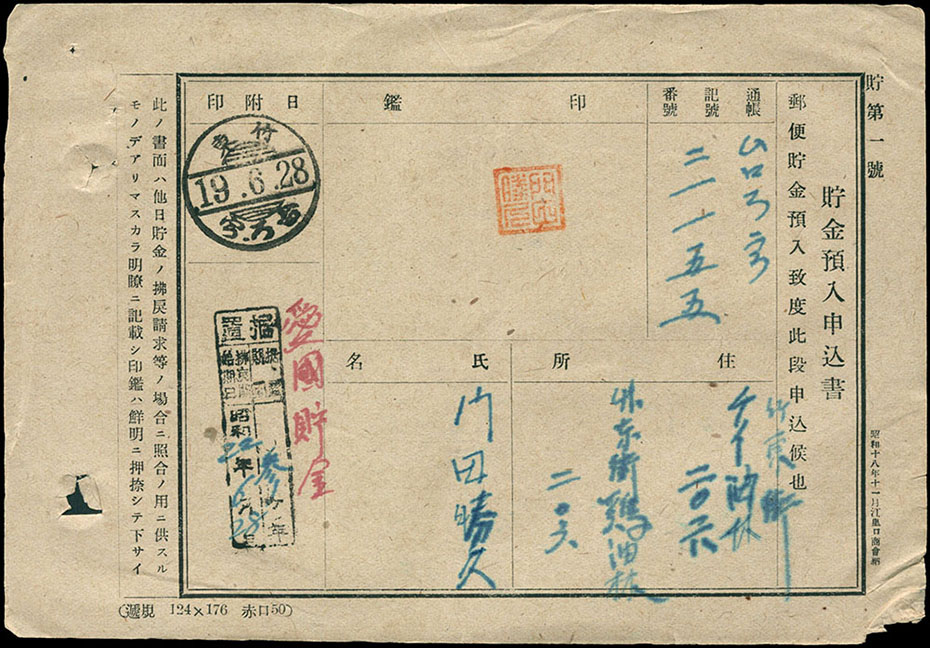 貯第一號
昭和十八年十一月江里口商會納
貯金預入申込書
郵便貯金預入致度此段申込候也
通帳
記號
番號
二一一五五
印
鑑
日附印
竹東
19.6.28
住
所
竹東街
二〇六
竹東街鷄油林
二〇六
氏
名
門田勝久
愛國貯金
据置
昭和22年6月28日
此ノ書面ハ他日貯金ノ拂戾請求等ノ場合ニ照合ノ用ニ供スル
モノデアリマスカラ明瞭ニ記載シ印鑑ハ鮮明ニ押捺シテ下サイ
(遞規 124×176 赤口50)